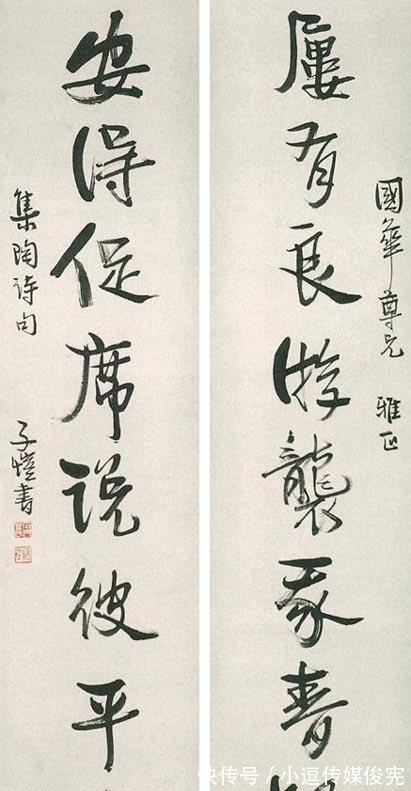 國華尊兄 雅正
屢有良游襲我春
安得促席説彼平
集陶詩句
子愷書
快传号 / 小逗传媒俊宪